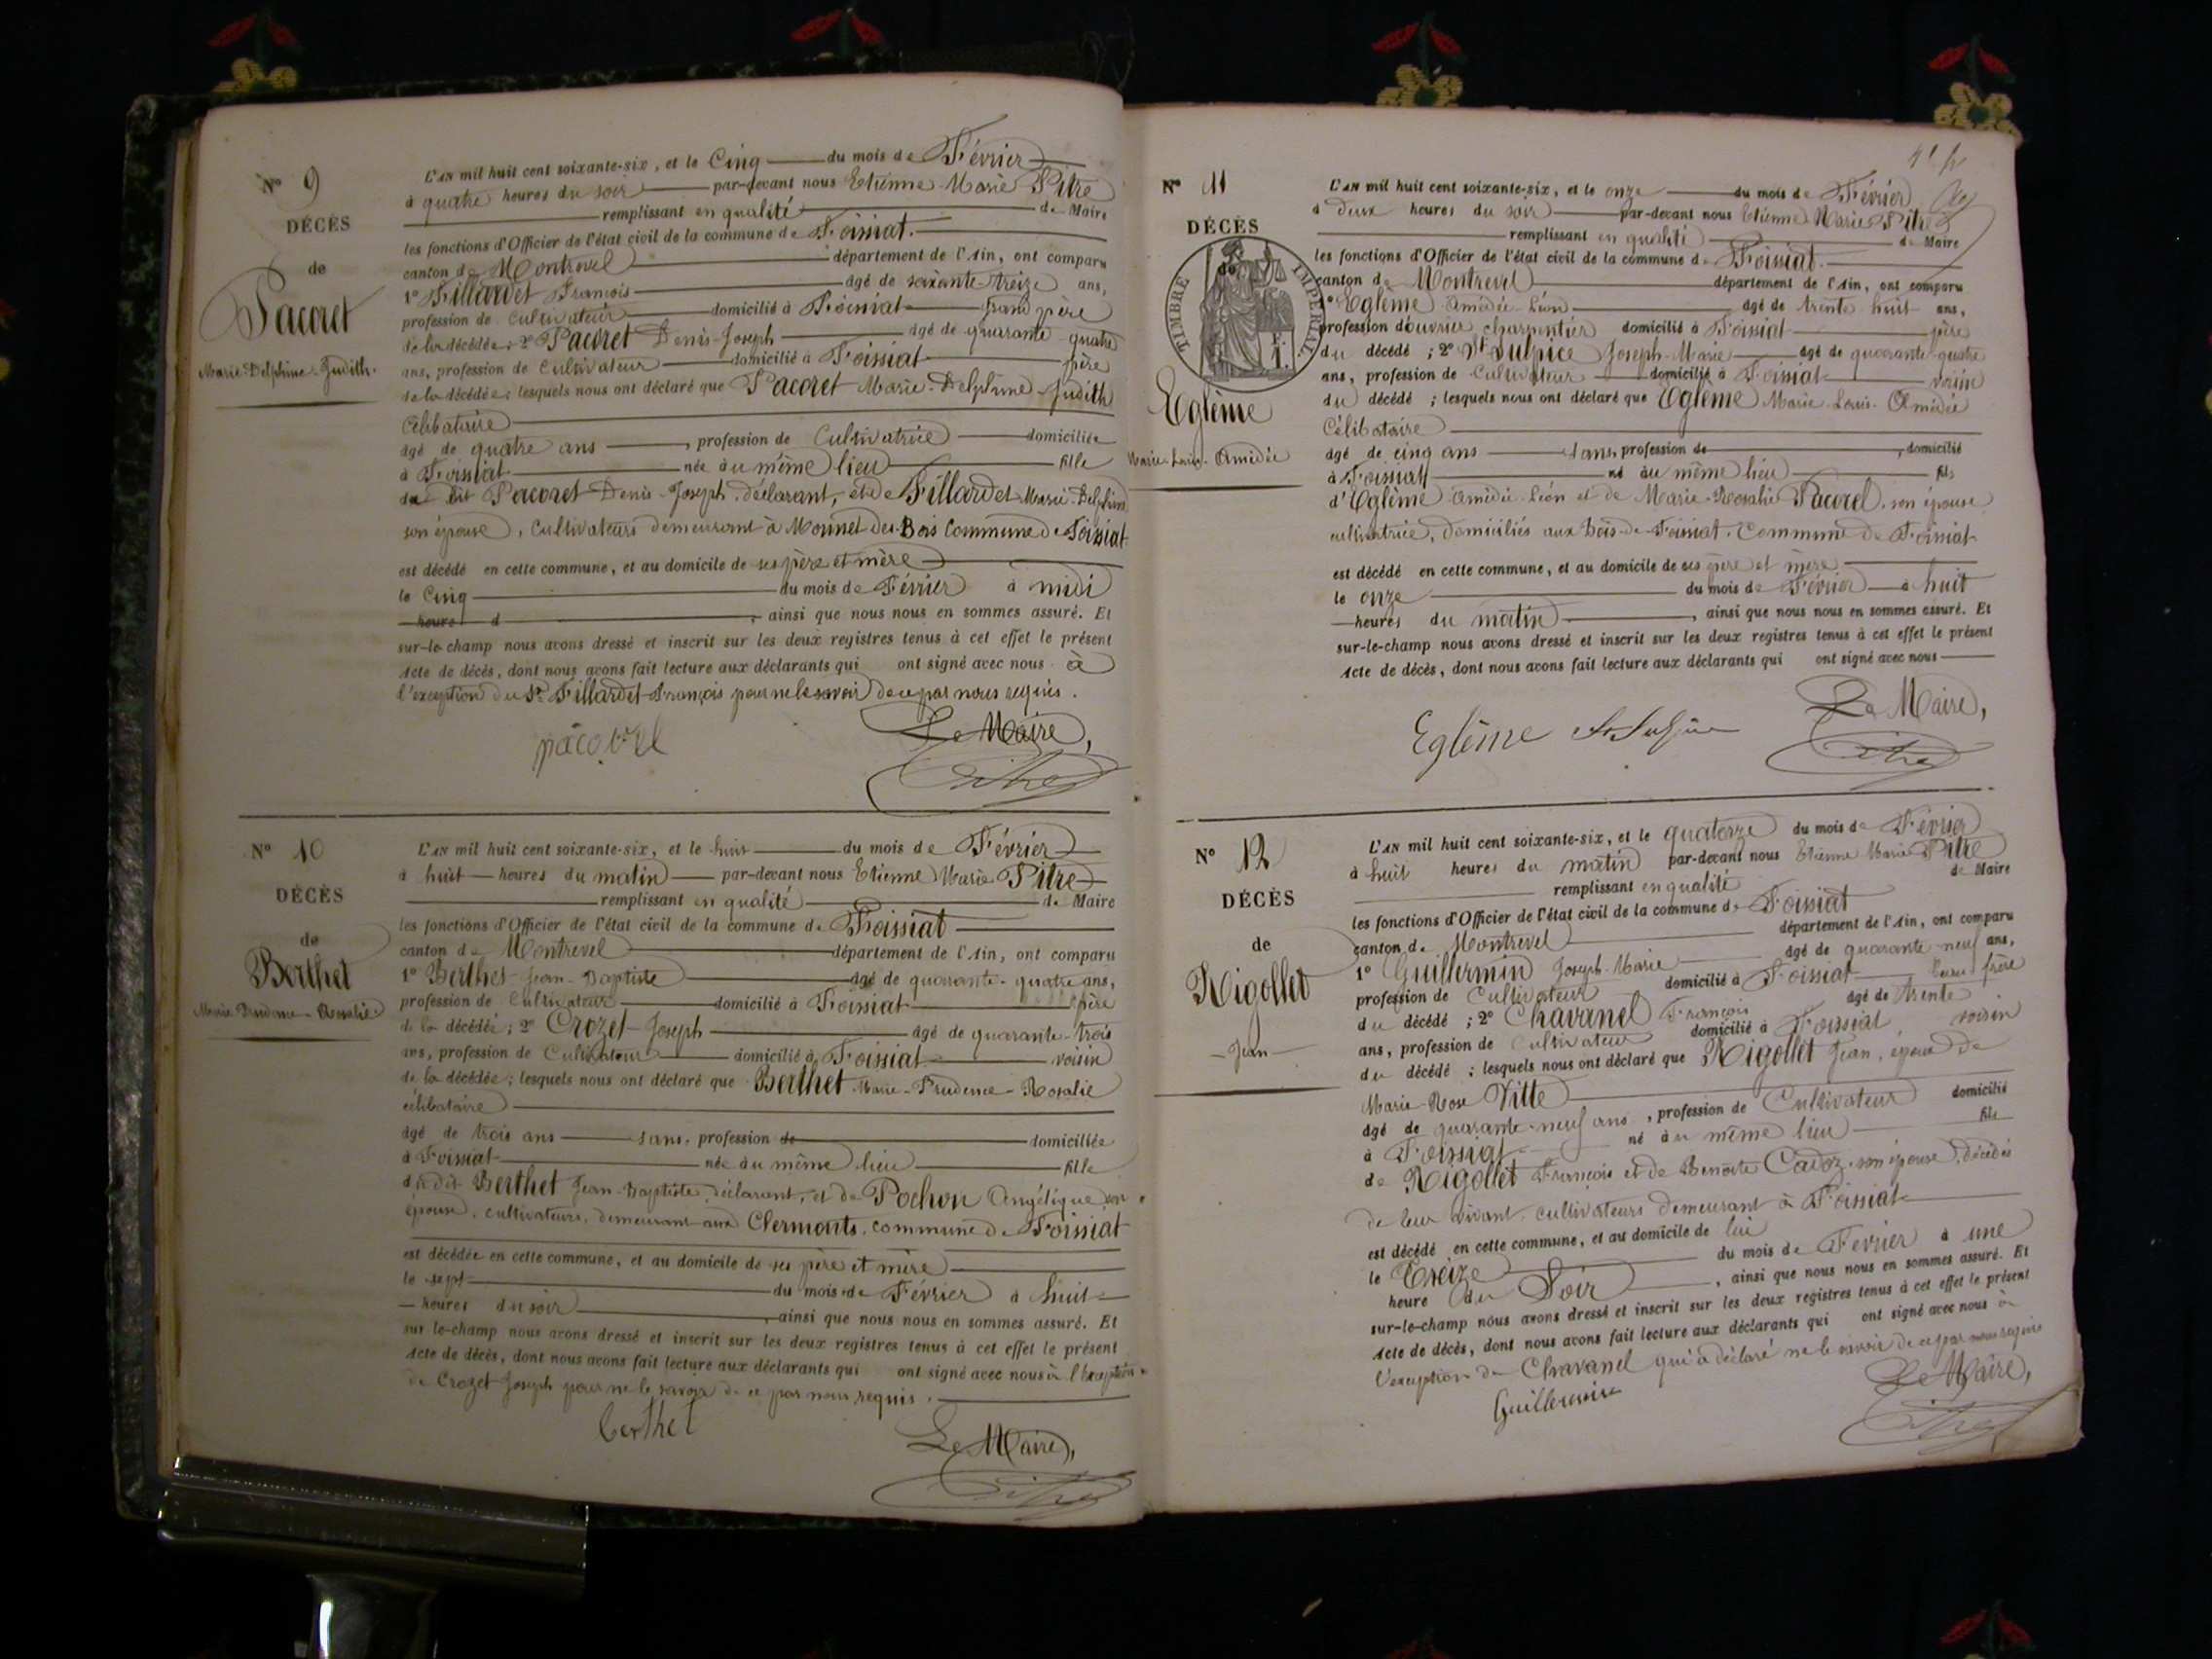 N° 9
DÉCÈS
de
Pacoret
Marie-Delphine-Judith.
L'AN mil huit cent soixante-six, et le Cinq du mois de Février
à quatre heures du soir par-devant nous Etienne-Marie Pitre
remplissant en qualité de Maire
les fonctions d'Officier de l'état civil de la commune de Foissiat.
canton de Montrevel département de l'Ain, ont comparu
1° Fillardet François âgé de soixante-treize ans,
profession de Cultivateur domicilié à Foissiat grand père
de la décédée; 2° Pacoret Denis-Joseph âgé de quarante-quatre
ans, profession de Cultivateur domicilié à Foissiat père
de la décédée; lesquels nous ont déclaré que Pacoret Marie-Delphine-Judith
Célibataire
âgé de quatre ans, profession de Cultivatrice domiciliée
à Foissiat née au même lieu fille
du dit Pacoret Denis-Joseph, déclarant, et de Fillardet Marie-Delphine
son épouse, Cultivateurs demeurant à Monnet des-Bois Commune de Foissiat
est décédé en cette commune, et au domicile de ses père et mère
le Cinq du mois de Février à midi
heure d, ainsi que nous nous en sommes assuré. Et
sur-le-champ nous avons dressé et inscrit sur les deux registres tenus à cet effet le présent
Acte de décès, dont nous avons fait lecture aux déclarants qui ont signé avec nous à
l'exception du Sr Fillardet François pour ne le savoir de ce par nous requis.
pacoret Le Maire,
Pitre
N° 10
DÉCÈS
de
Berthet
Marie-Prudence-Rosalie
L'AN mil huit cent soixante-six, et le huit du mois de Février
à huit heures du matin par-devant nous Etienne Marie Pitre
remplissant en qualité de Maire
les fonctions d'Officier de l'état civil de la commune de Foissiat
canton de Montrevel département de l'Ain, ont comparu
1° Berthet Jean-Baptiste âgé de quarante-quatre ans,
profession de Cultivateur domicilié à Foissiat père
de la décédée; 2° Crozet Joseph âgé de quarante-trois
ans, profession de Cultivateur domicilié à Foissiat voisin
de la décédée; lesquels nous ont déclaré que Berthet Marie-Prudence-Rosalie
célibataire
âgé de trois ans sans, profession de domiciliée
à Foissiat née au même lieu fille
du dit Berthet Jean-Baptiste, déclarant, et de Pochon Angélique son
épouse, cultivateurs, demeurant aux Clermonts, commune de Foissiat
est décédée en cette commune, et au domicile de ses père et mère
le sept du mois de Février à huit
heures du soir, ainsi que nous nous en sommes assuré. Et
sur-le-champ nous avons dressé et inscrit sur les deux registres tenus à cet effet le présent
Acte de décès, dont nous avons fait lecture aux déclarants qui ont signé avec nous à l'exception
de Crozet Joseph pour ne le savoir de ce par nous requis.
berthet
Le Maire,
Pitre
N° 11
DÉCÈS
de
TIMBRE IMPÉRIAL.
Eglème
Marie-Louis-Amédée
L'AN mil huit cent soixante-six, et le onze du mois de Février
à deux heures du soir par-devant nous Etienne Marie Pitre
remplissant en qualité de Maire
les fonctions d'Officier de l'état civil de la commune de Foissiat.
canton de Montrevel département de l'Ain, ont comparu
1° Eglème Amédée-Léon âgé de trente huit ans,
profession d'ouvrier charpentier domicilié à Foissiat père
du décédé; 2° St Sulpice Joseph-Marie âgé de quarante-quatre
ans, profession de Cultivateur domicilié à Foissiat voisin
du décédé; lesquels nous ont déclaré que Eglème Marie-Louis-Amédée
Célibataire
âgé de cinq ans sans, profession de, domicilié
à Foissiat né au même lieu fils
d'Eglème Amédée-Léon et de Marie-Rosalie Pacoret, son épouse
cultivatrice, domiciliés aux Bois-de-Foissiat, Commune de Foissiat
est décédé en cette commune, et au domicile de ses père et mère
le onze du mois de Février à huit
heures du matin, ainsi que nous nous en sommes assuré. Et
sur-le-champ nous avons dressé et inscrit sur les deux registres tenus à cet effet le présent
Acte de décès, dont nous avons fait lecture aux déclarants qui ont signé avec nous
Le Maire,
Eglème St Sulpice
Pitre
N° 12
DÉCÈS
de
Rigollet
Jean
L'AN mil huit cent soixante-six, et le quatorze du mois de Février
à huit heures du matin par-devant nous Etienne Marie Pitre
remplissant en qualité de Maire
les fonctions d'Officier de l'état civil de la commune de Foissiat
canton de Montrevel département de l'Ain, ont comparu
1° Guillermin Joseph-Marie âgé de quarante-neuf ans,
profession de Cultivateur domicilié à Foissiat beau-frère
du décédé; 2° Chavanel François âgé de trente
ans, profession de Cultivateur domicilié à Foissiat, voisin
du décédé; lesquels nous ont déclaré que Rigollet Jean, époux de
Marie-Rose Vitte
âgé de quarante-neuf ans, profession de Cultivateur domicilié
à Foissiat né au même lieu fils
de Rigollet François et de Benoîte Cadoz, son épouse, décédés
de leur vivant cultivateurs demeurant à Foissiat
est décédé en cette commune, et au domicile de lui
le Treize du mois de Février à une
heure du Soir, ainsi que nous nous en sommes assuré. Et
sur-le-champ nous avons dressé et inscrit sur les deux registres tenus à cet effet le présent
Acte de décès, dont nous avons fait lecture aux déclarants qui ont signé avec nous à
l'exception de Chavanel qui a déclaré ne le savoir de ce par nous requis
Guillermin
Le Maire,
Pitre